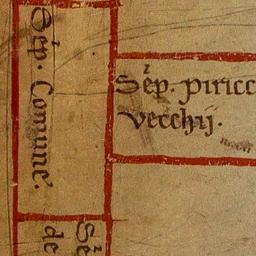 Sēp. Comune.
Sēp. piricc
vecchij.
Sē
de